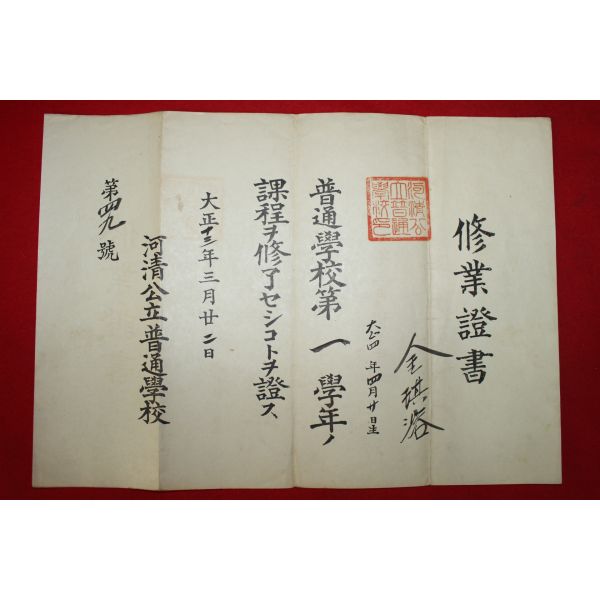 修業證書
金琪
大正四年四月廿日生
河清公
立普通
學校印
普通學校第一學年ノ
課程ヲ修了セシコトヲ證ス
大正十三年三月廿二日
河清公立普通學校
第四九號